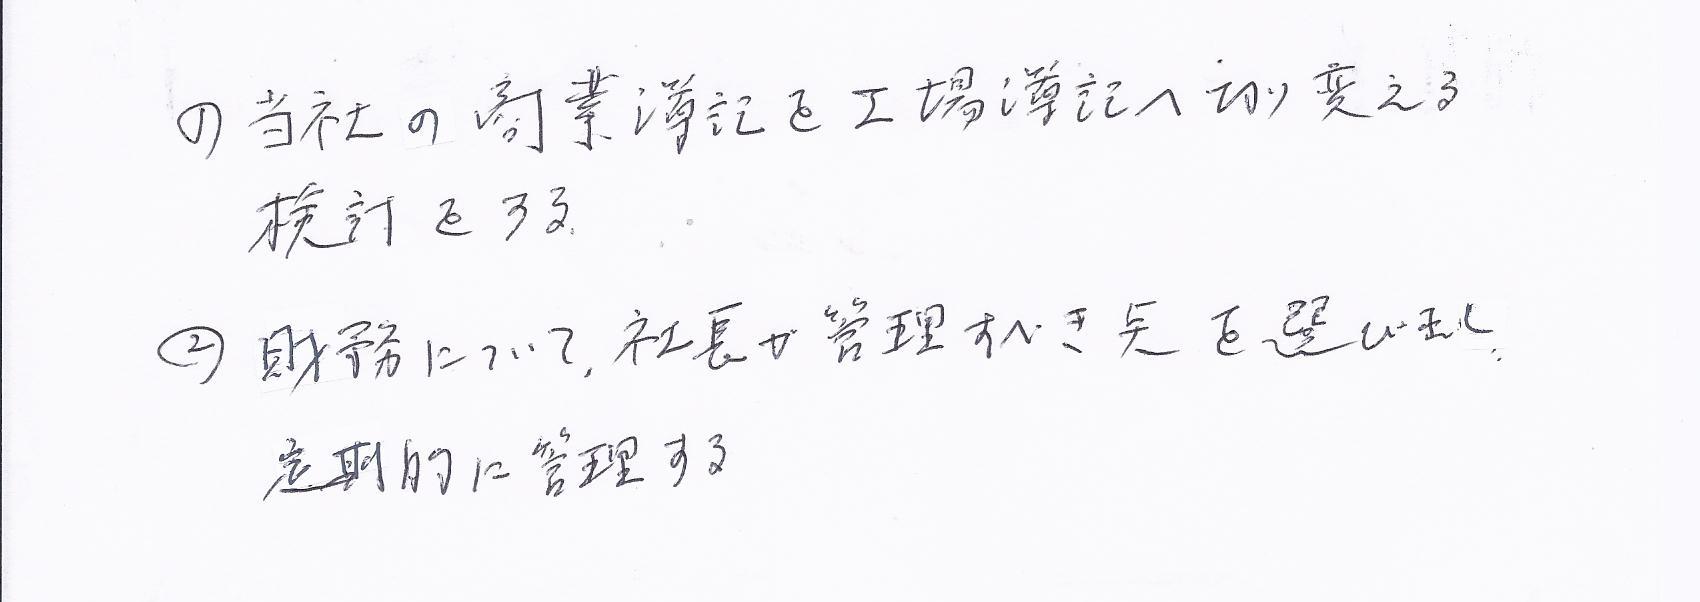 ① 当社の商業簿記を工場簿記へ切り変える
検討をする
② 財務について、社長が管理すべき点を選び出し、
定期的に管理する